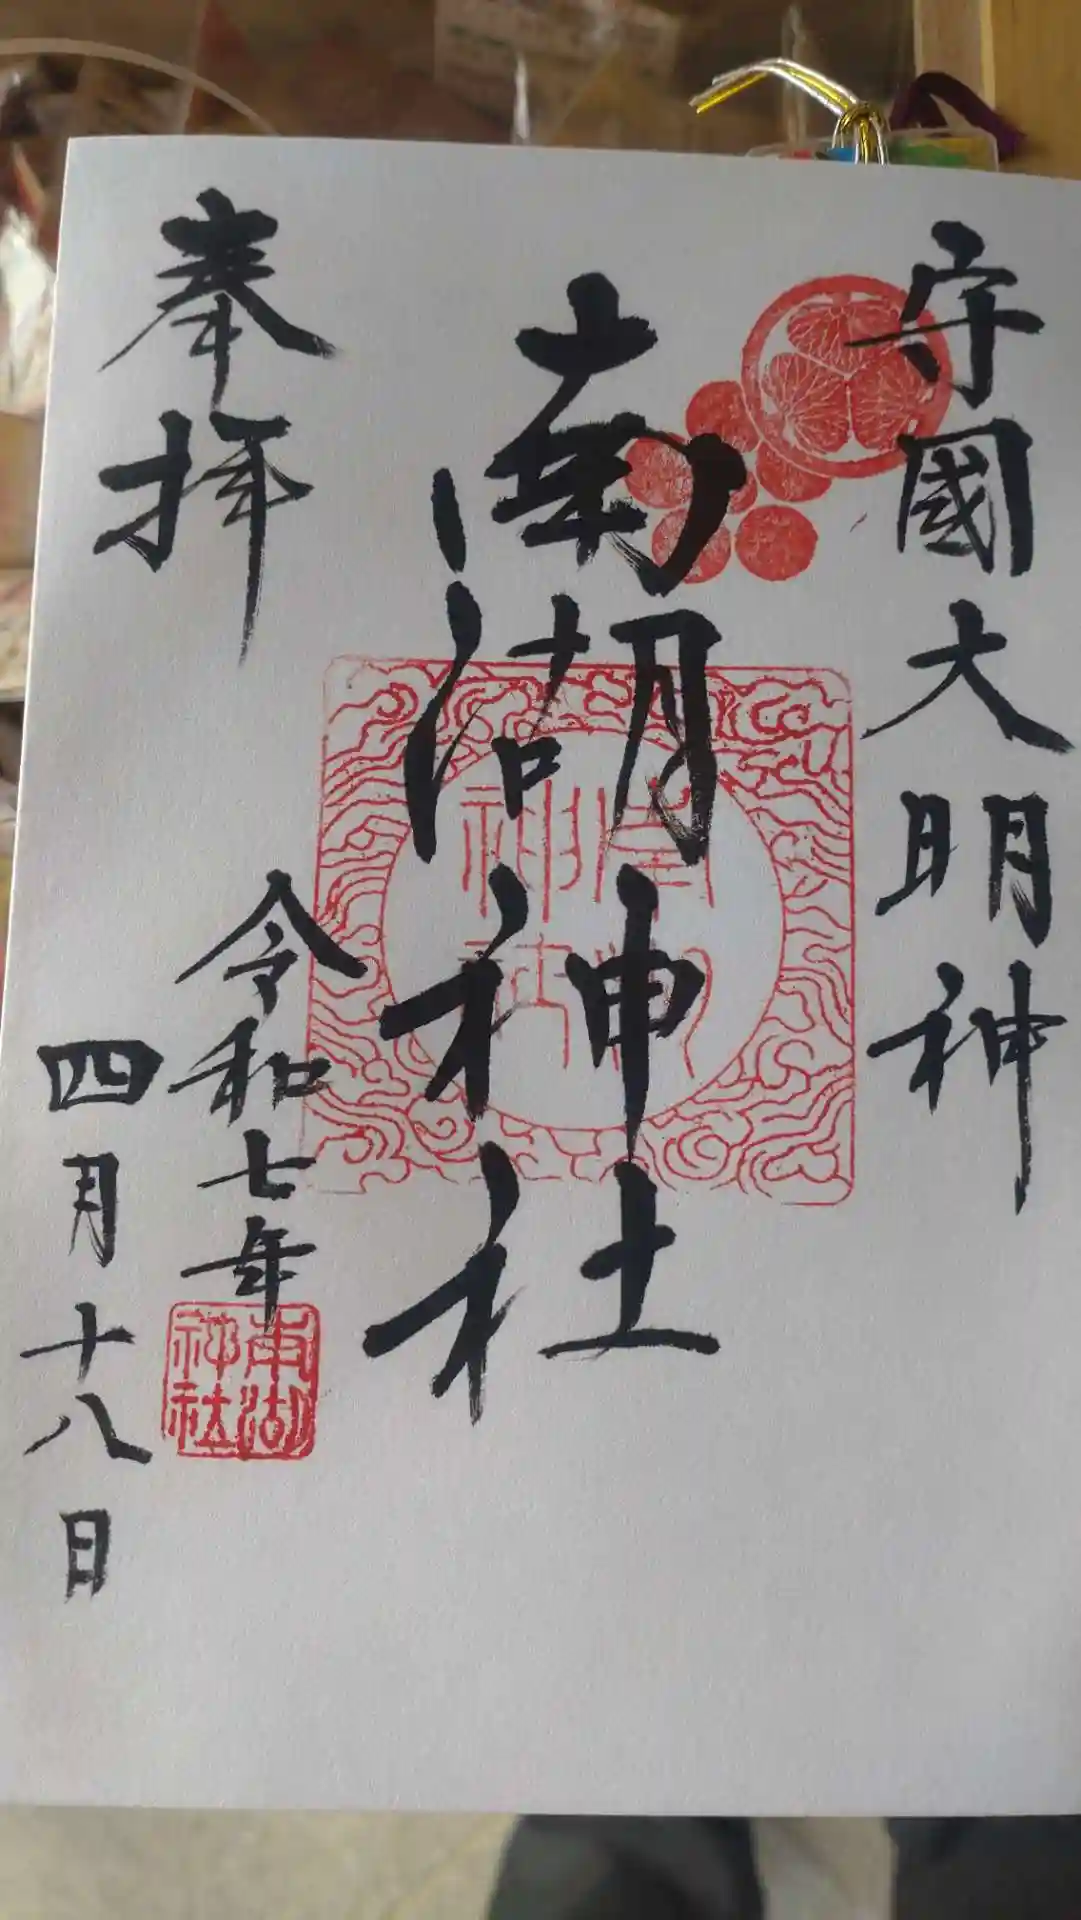 守國大明神
南湖神社
奉拝
令和七年
四月十八日
南湖
神社